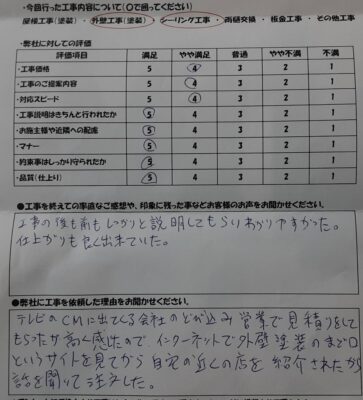 ・今回行った工事内容について(○で囲ってください)
屋根工事(塗装)・外壁工事(塗装)・シーリング工事・雨樋交換・板金工事・その他工事
・弊社に対しての評価
評価項目 満足 やや満足 普通 やや不満 不満
・工事価格 5 4 3 2 1
・工事のご提案内容 5 4 3 2 1
・対応スピード 5 4 3 2 1
・工事説明はきちんと行われたか 5 4 3 2 1
・お施主様や近隣への配慮 5 4 3 2 1
・マナー 5 4 3 2 1
・約束事はしっかり守られたか 5 4 3 2 1
・品質(仕上り) 5 4 3 2 1
●工事を終えての率直なご感想や、印象に残った事などお客様のお声をお聞かせください。
工事の後も前もしっかりと説明してもらいわかりやすかった。
仕上がりも良く出来ていた。
●弊社に工事を依頼した理由をお聞かせください。
テレビのCMに出てくる会社のとび込み営業で見積りをして
もらったが高く感じたので、インターネットで外壁塗装のまど口
というサイトを見てから自宅の近くの店を紹介されたから
話を聞いて注文した。